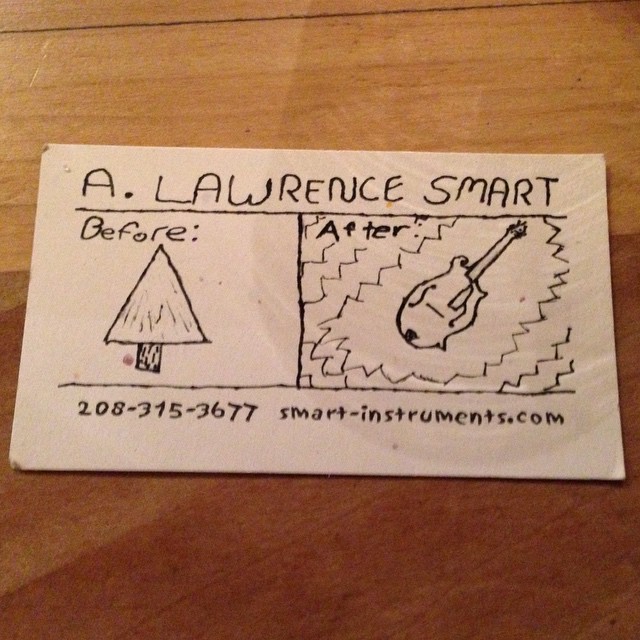 A. LAWRENCE SMART
Before:
After:
208-315-3677 smart-instruments.com